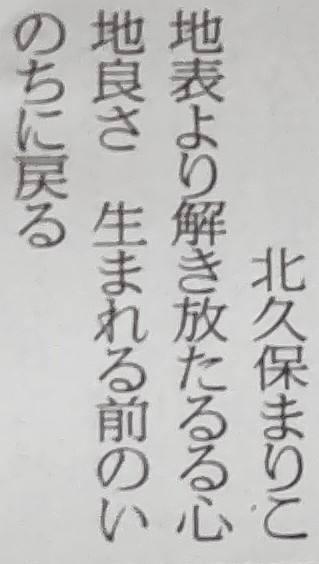 北久保まりこ
地表より解き放たるる心
地良さ　生まれる前のい
のちに戻る